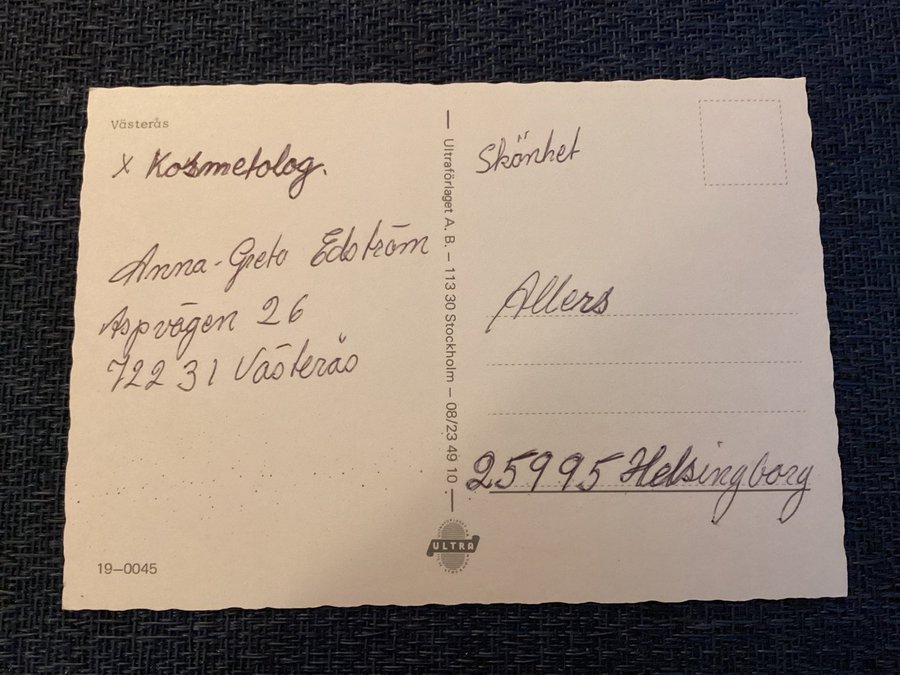 Västerås
x Kosmetolog.
Anna-Greta Edström
Aspvägen 26
722 31 Västerås
19—0045
— Ultraförlaget A. B. — 113 30 Stockholm — 08/23 49 10 —
ULTRA
Skönhet
Allers
25995 Helsingborg